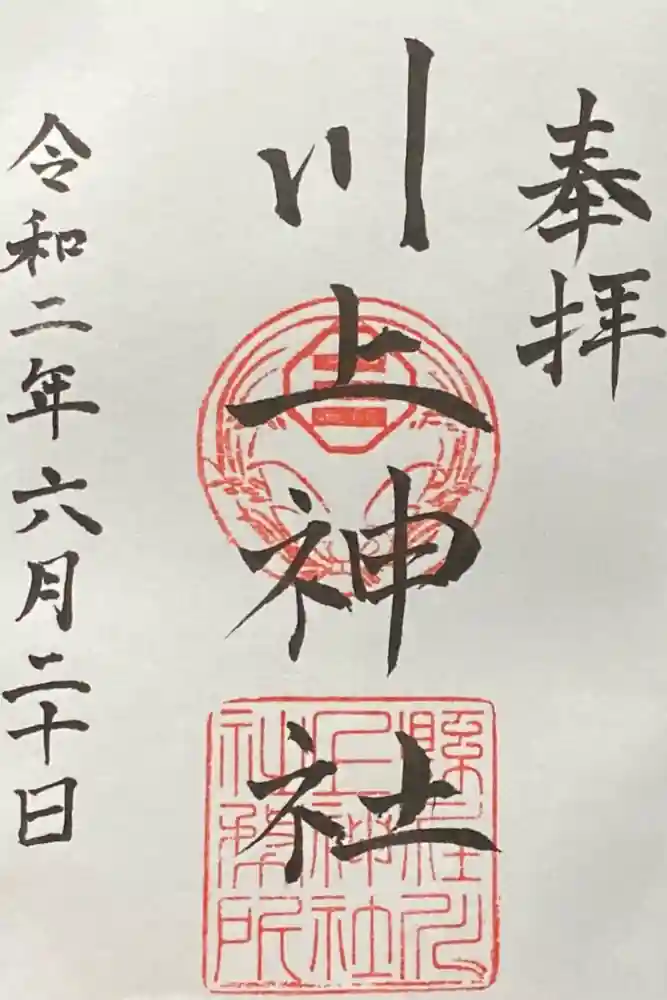 奉拝
川上神社
令和二年六月二十日
上神社
社務所